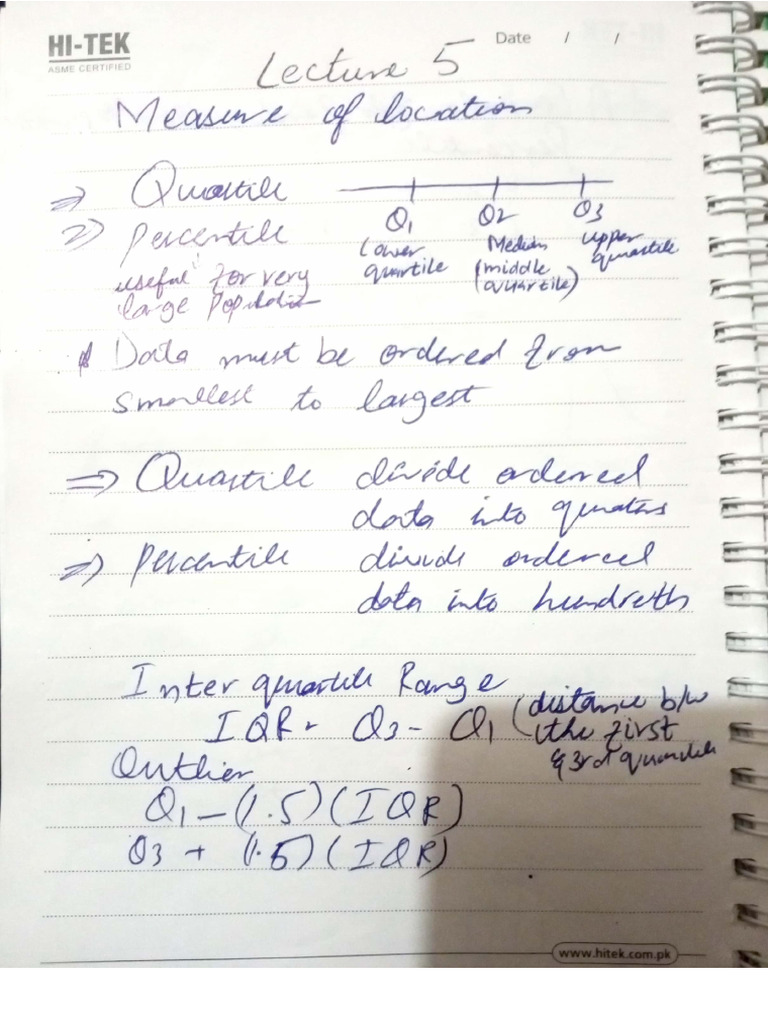 HI-TEK
ASME CERTIFIED
Date / /
Lecture 5
Measure of location
=> Quartile
2) Percentile
useful for very
large Population
Q1 Q2 Q3
Lower quartile
Median (middle quartile)
upper quartile
Data must be ordered from
smallest to largest
=> Quartile divide ordered
data into quaters
=> Percentile divide ordered
data into hundreth
Inter quartile Range
IQR = Q3 - Q1 (distance b/w
the first
& 3rd quartile
Outlier
Q1 - (1.5) (IQR)
Q3 + (1.5) (IQR)
www.hitek.com.pk